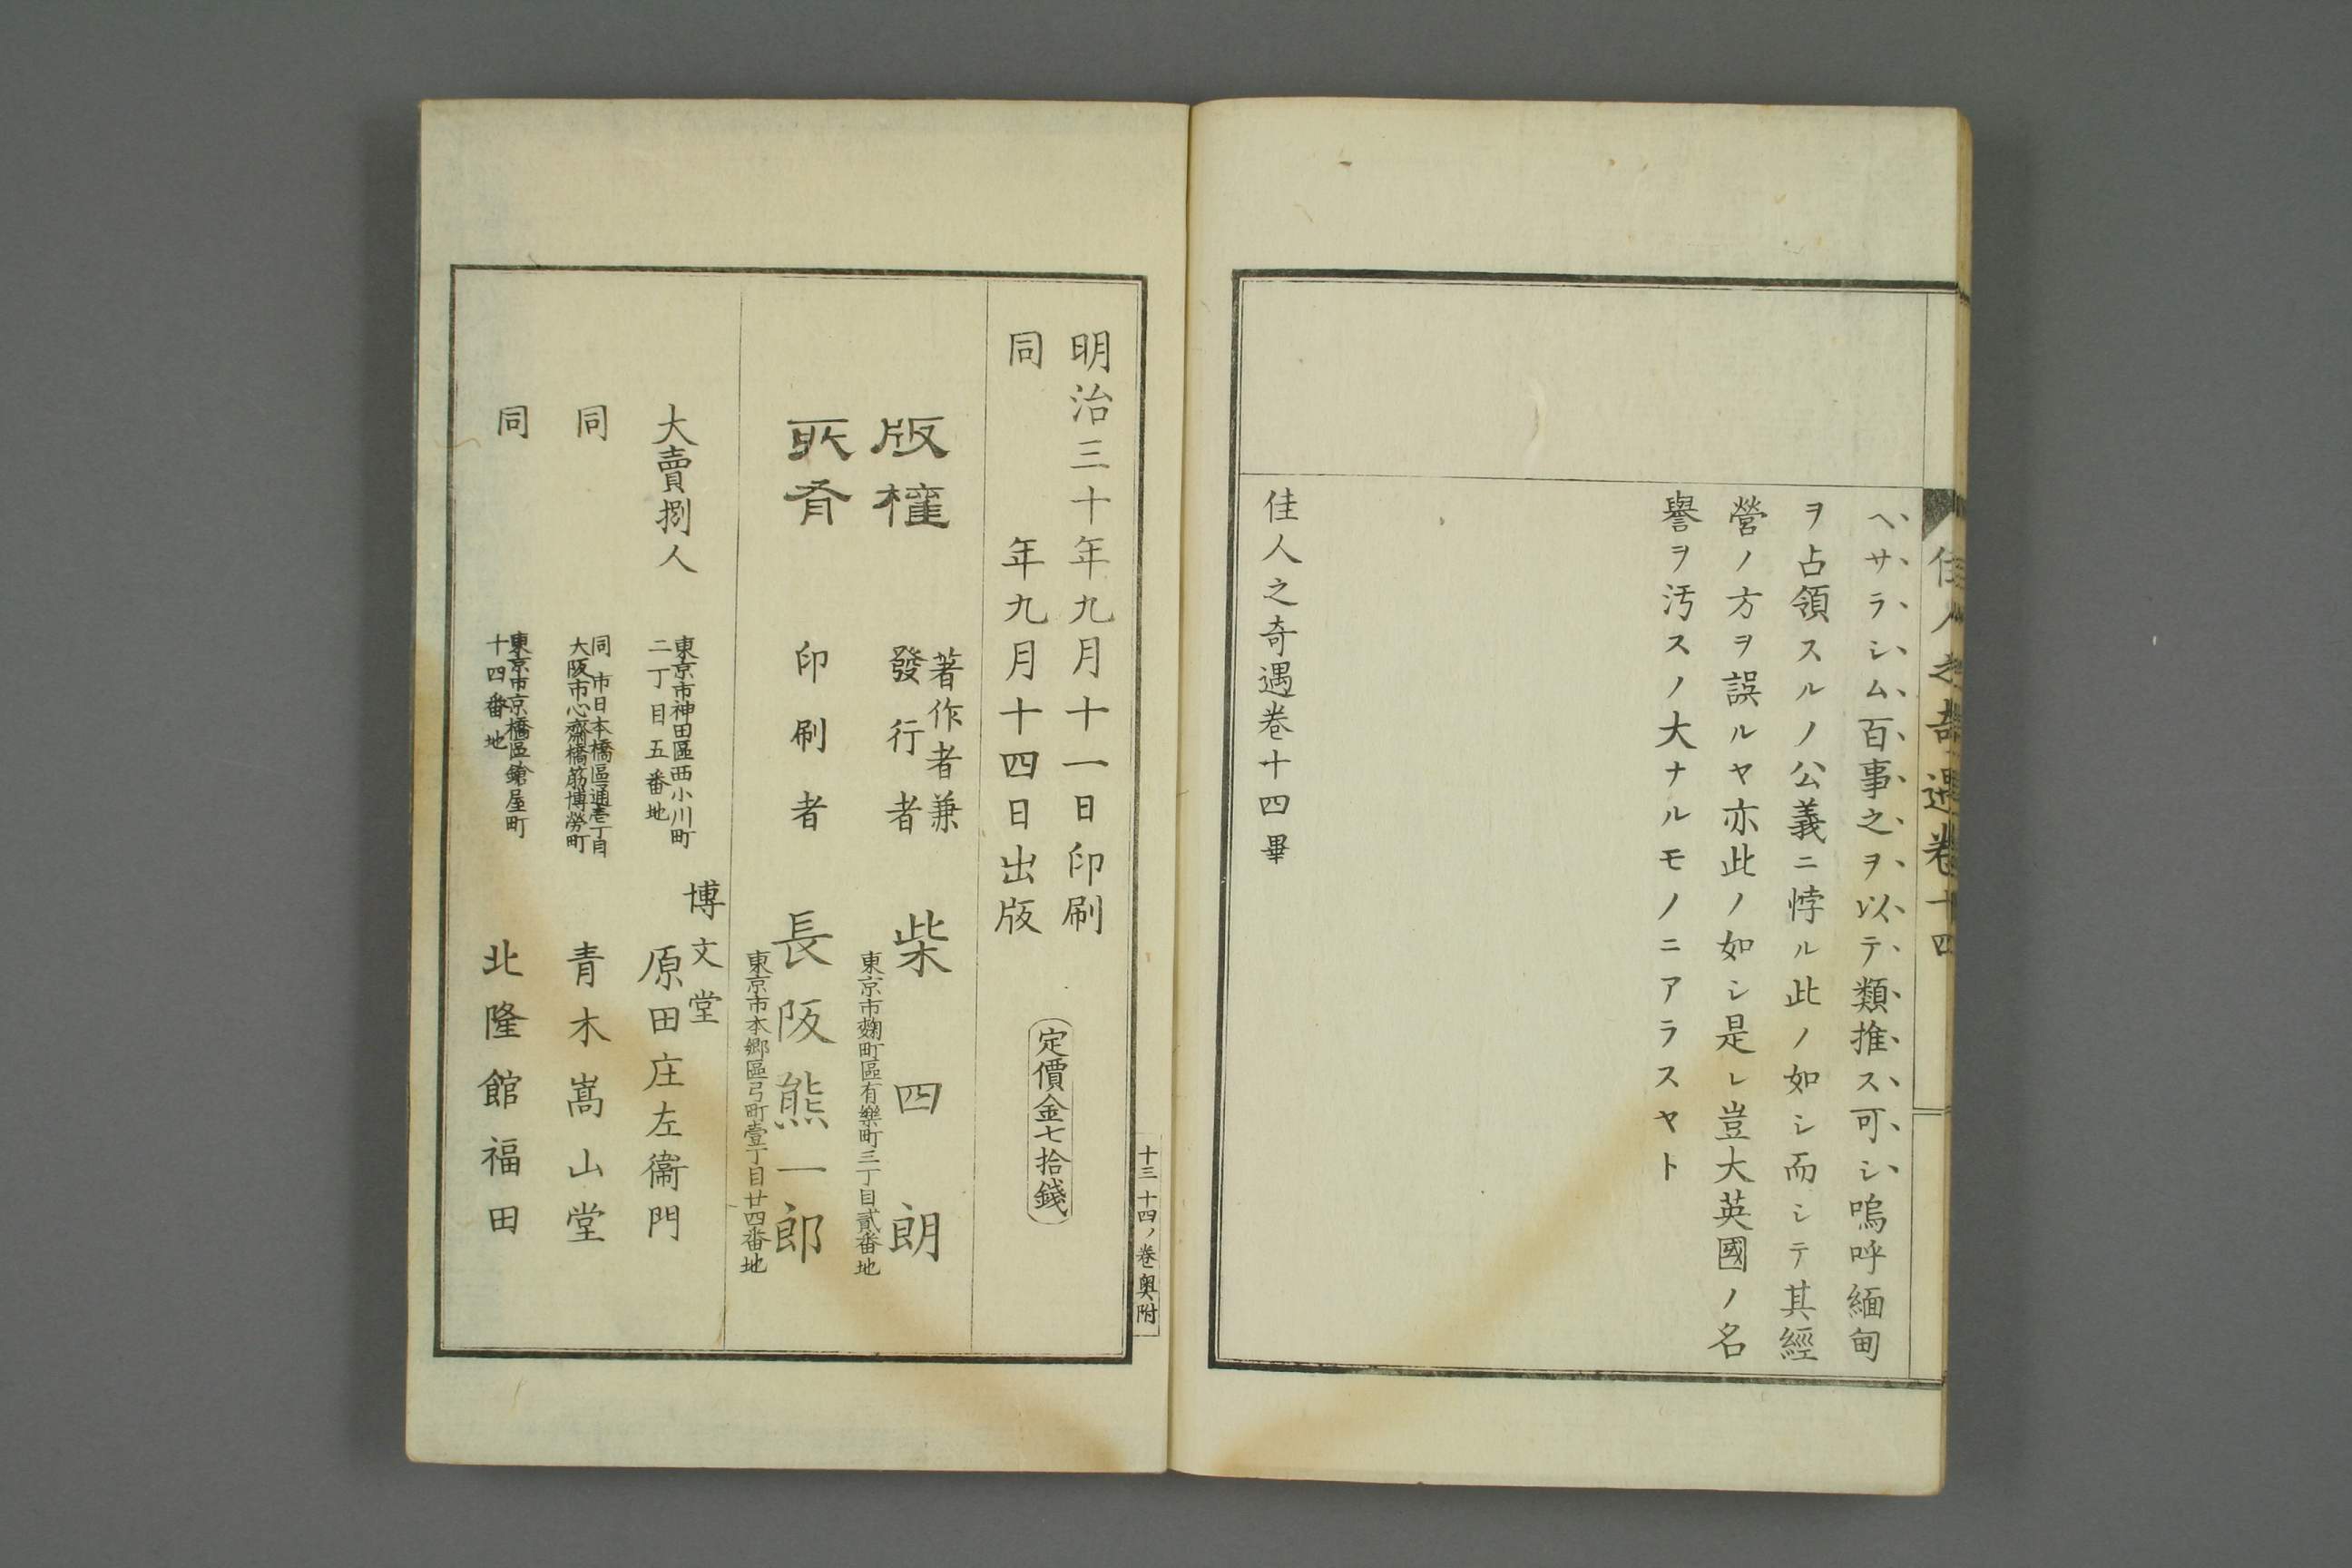 佳人之奇遇卷十四
ヘサラシム百事之ヲ以テ類推ス可シ嗚呼緬甸
ヲ占領スルノ公義ニ悖ル此ノ如シ而シテ其經
營ノ方ヲ誤ルヤ亦此ノ如シ是レ豈大英國ノ名
譽ヲ汚スノ大ナルモノニアラスヤト
佳人之奇遇卷十四畢
十三十四ノ卷奥附
明治三十年九月十一日印刷
同年九月十四日出版
定價金七拾錢
版權
所有
著作者兼
發行者
柴四朗
東京市麹町區有樂町三丁目貳番地
印刷者
長阪熊一郎
東京市本郷區弓町壹丁目廿四番地
大賣捌人
東京市神田區西小川町
二丁目五番地
博文堂
原田庄左衞門
同
同市日本橋區通壱丁目
大阪市心齋橋筋博勞町
青木嵩山堂
同
東京市京橋區鎗屋町
十四番地
北隆館福田